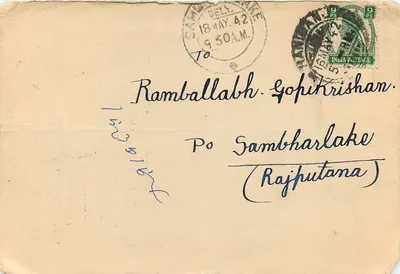 SAMBHAR LAKE
DELY.
18 MAY. 42
9.30 A.M.
16 MAY. 42
INDIA POSTAGE
9
To
Ramballabh. Gopikrishan.
Po Sambharlake
(Rajputana)